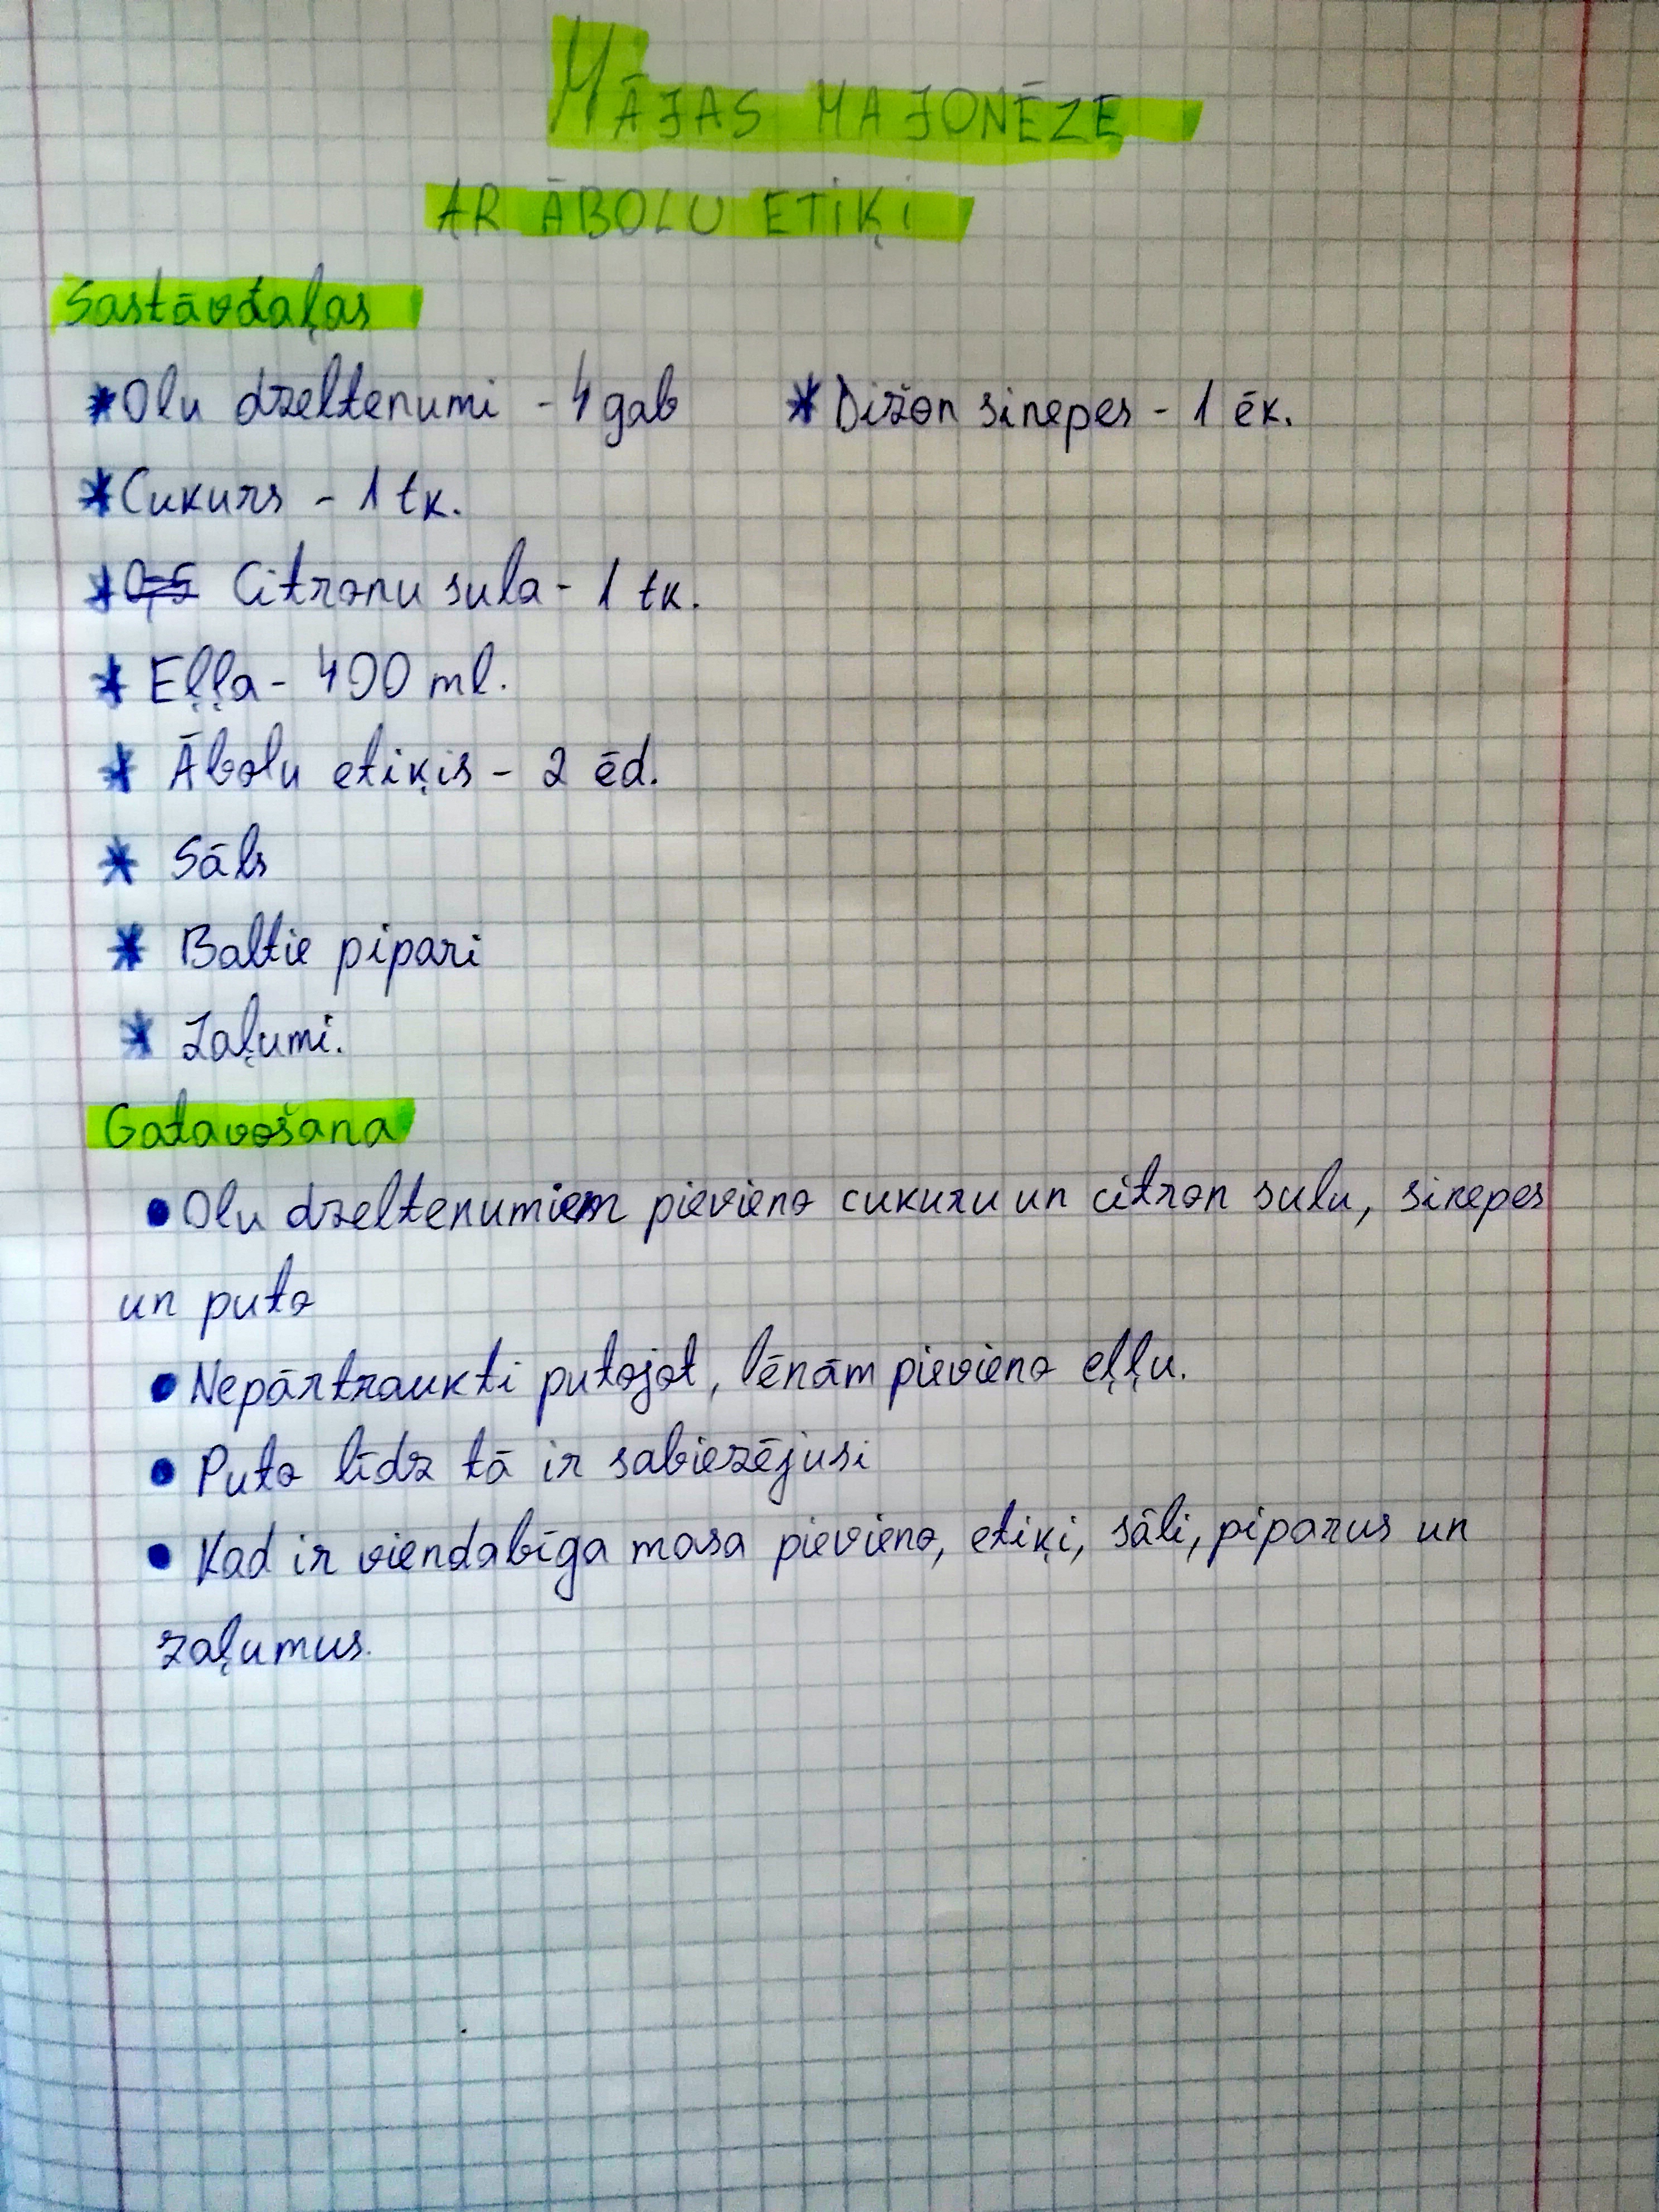 MĀJAS MAJONĒZE
AR ĀBOLU ETIĶI
Sastāvdaļas
* Olu dzeltenumi - 4 gab
* Dižon sinepes - 1 ēk.
* Cukurs - 1 tk.
* 0,5 Citronu sula - 1 tk.
* Eļļa - 400 ml.
* Ābolu etiķis - 2 ēd.
* Sāls
* Baltie pipari
* Zaļumi.
Gatavošana
• Olu dzeltenumiem pievieno cukuru un citron sulu, sinepes
un puto
• Nepārtraukti putojot, lēnām pievieno eļļu.
• Puto līdz tā ir sabiezējusi
• Kad ir viendabīga masa pievieno, etiķi, sāli, piparus un
zaļumus.